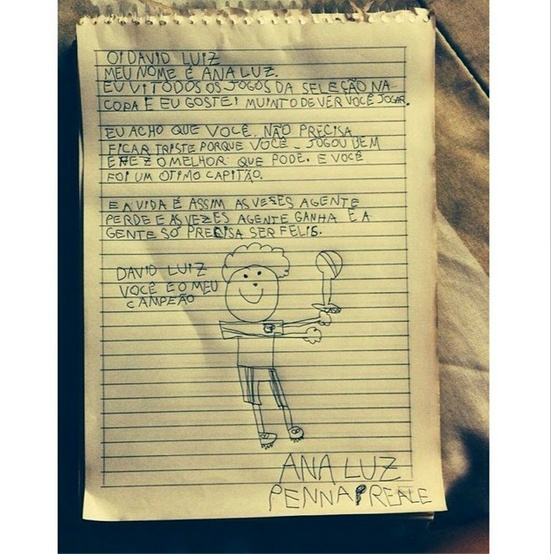 OI DAVID LUIZ
MEU NOME É ANA LUZ.
EU VI TODOS OS JOGOS DA SELEÇÃO NA
COPA E EU GOSTEI MUINTO DE VER VOCÊ JOGAR.
EU ACHO QUE VOCÊ NÃO PRECISA
FICAR TRISTE PORQUE VOCÊ JOGOU BEM
E FEZ O MELHOR QUE PODE. E VOCÊ
FOI UM OTIMO CAPITÃO.
E A VIDA É ASSIM AS VESES AGENTE
PERDE E AS VEZES AGENTE GANHA E A
GENTE SÓ PRECISA SER FELIS.
DAVID LUIZ
VOCÊ É O MEU
CAMPEÃO
ANA LUZ
PENNA REALE